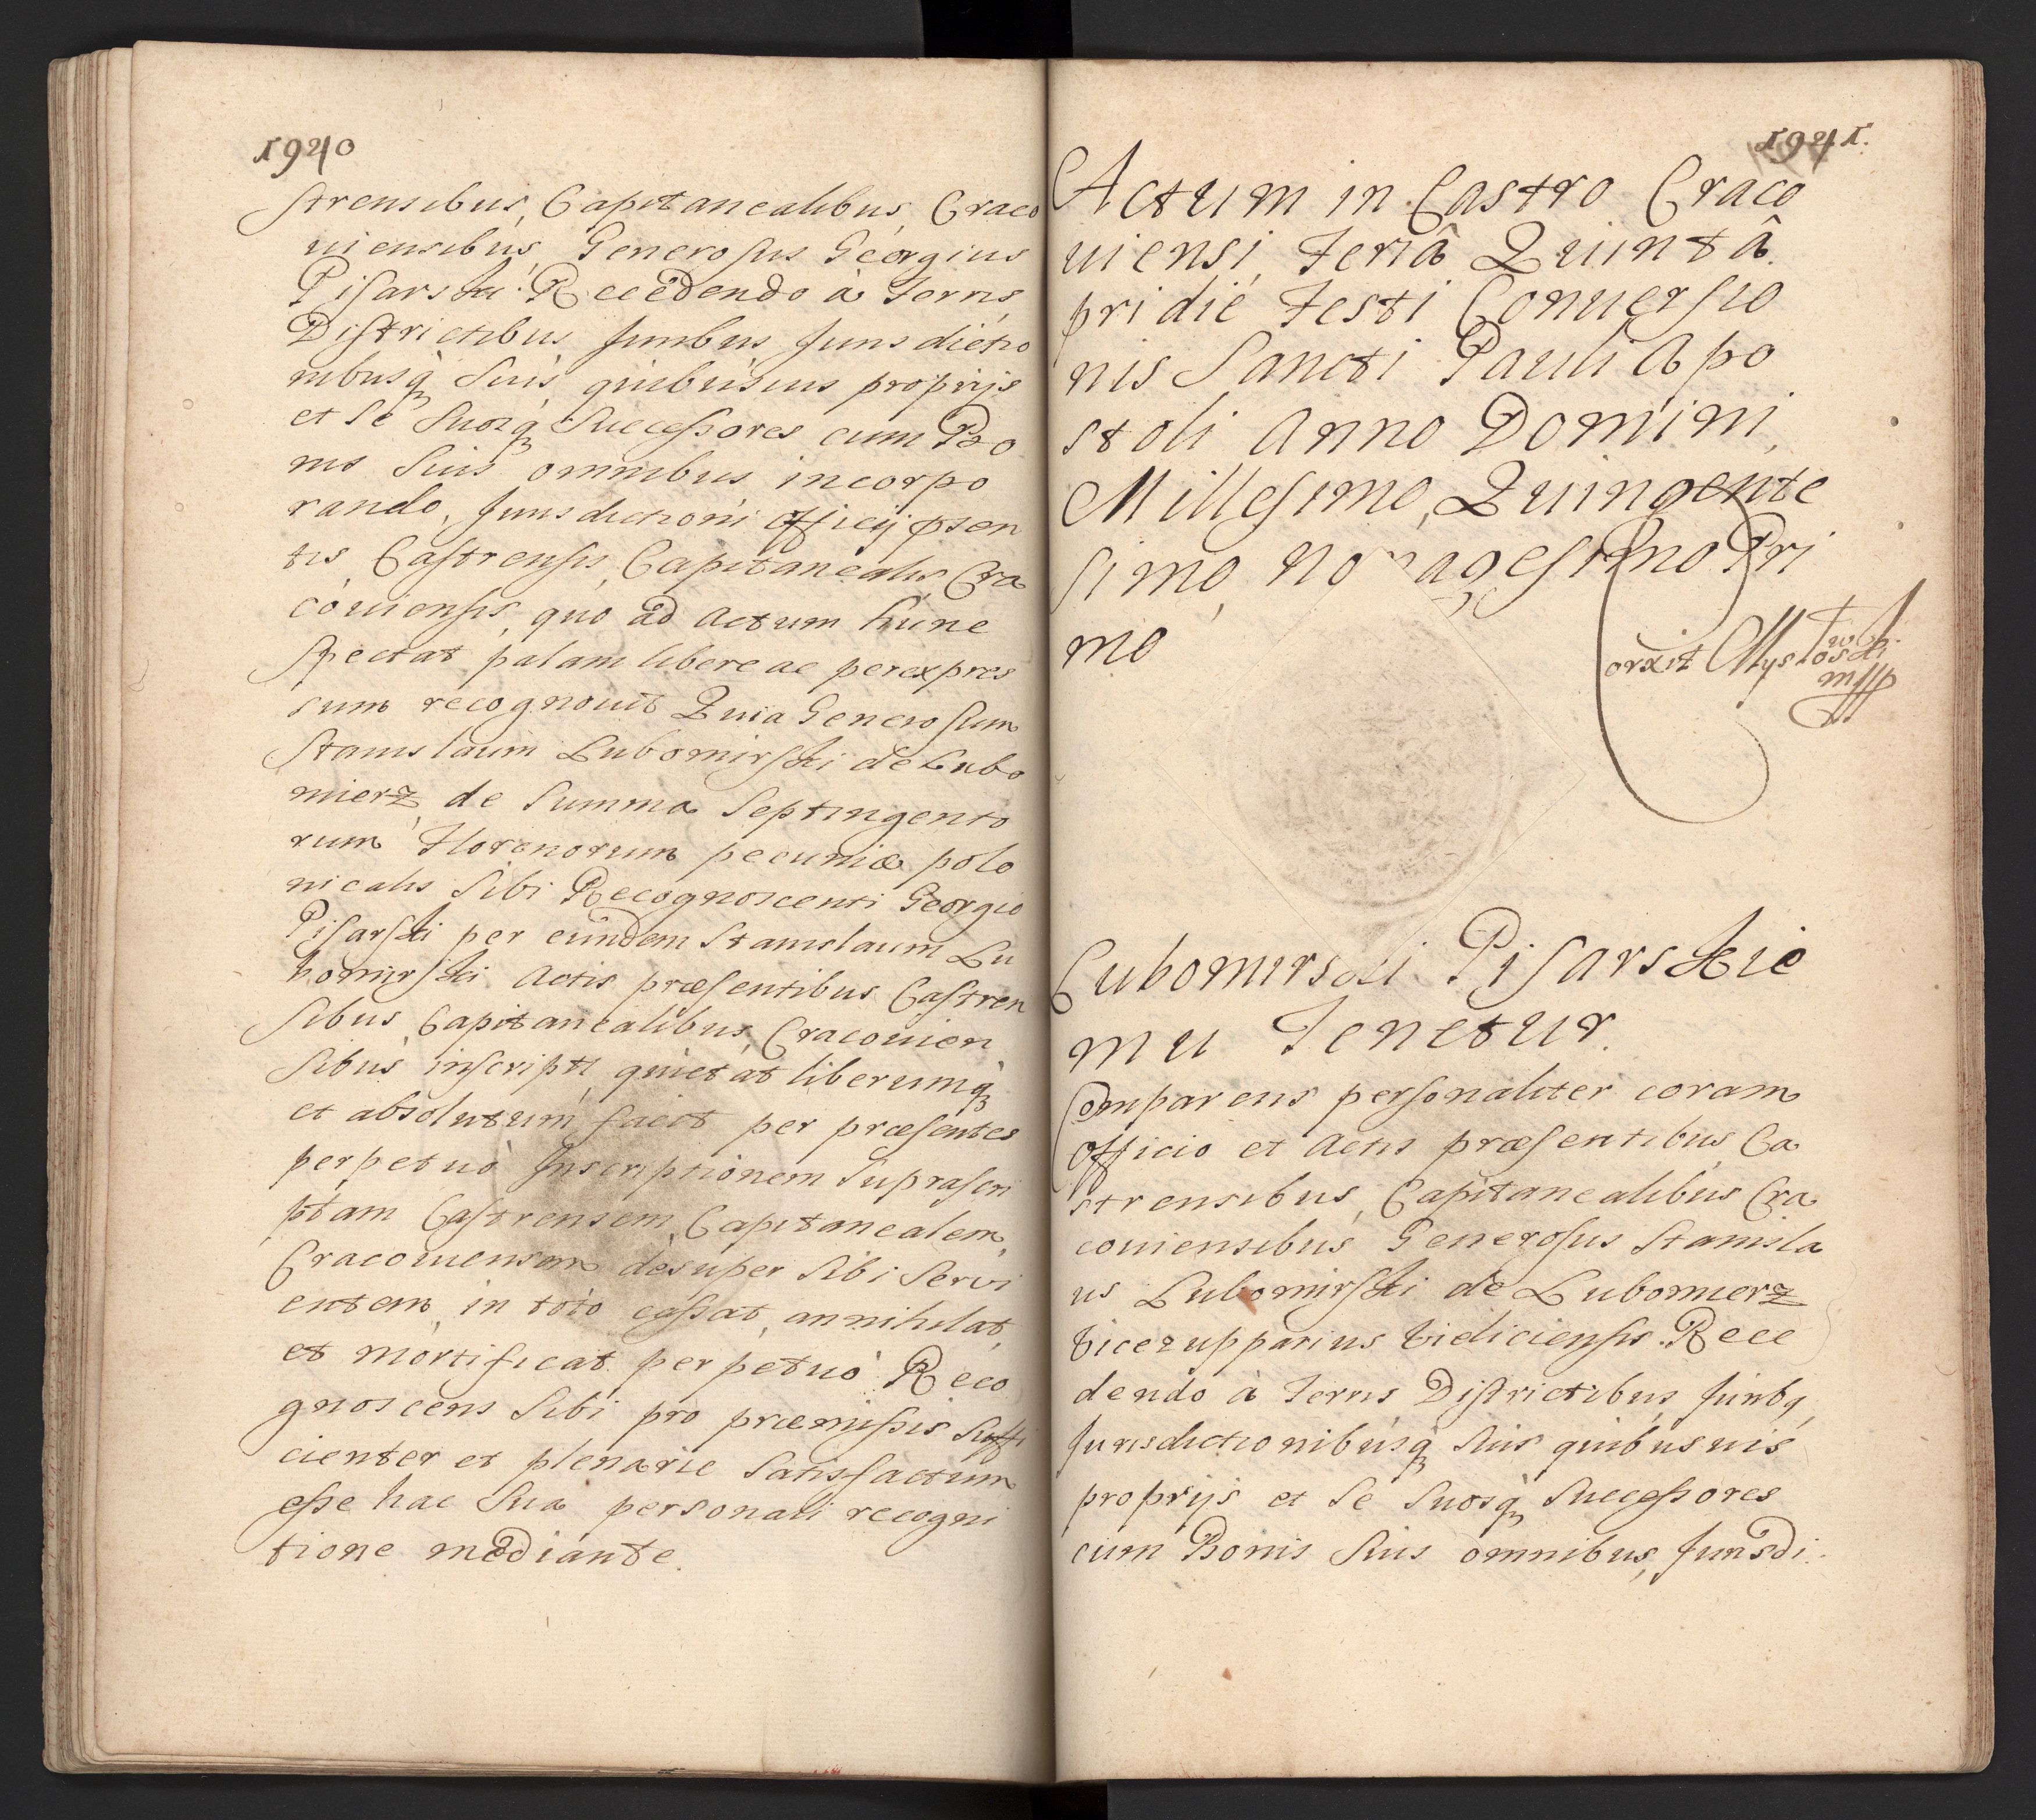 1940
strensibus, Capitanealibus, Craco
uiensibus, Generosus Georgius
Pisarski. Recedendo à Terris,
Districtibus Juribus Jurisdictio
nibusq̃ suis, quibusuis proprijs
et se suosq̃ Successores cum Bo
nis suis omnibus incorpo
rando, Jurisdictioni officij p̃sen
tis Castrensis, Capitanealis Cra
couiensis, quo ad actum hunc
spectat palam libere ac per expres
sum recognouit Quia Generosum
Stanislaum Lubomirski de Lubo
mierz, de summa Septingento
rum Florenorum pecuniæ polo
nicalis sibi Recognoscenti Georgio
Pisarski per eundem Stanislaum Lu
bomirski Actis præsentibus Castren
sibus Capitanealibus, Cracouien
sibus inscripti, quietat liberumq̃
et absolutum facit per præsentes
perpetuò Inscriptionem suprascri
ptam Castrensem, Capitanealem,
Cracouiensem desuper sibi servi
entem, in toto cassat, annihilat,
et mortificat perpetuò Reco
gnoscens sibi pro præmissis suffi
cienter et plenarie satisfactum
esse hac sua personali recogni
tione mediante.
1941.
Actum in Castro Craco
uiensi, Feriâ Quintâ
pridie Festi Conuersio
nis Sancti Pauli Apo
stoli Anno Domini,
Millesimo, Quingente
simo, nonagesimo Pri
mo
Lubomirski Pisarskie
mu Tenetur.
Comparens personaliter coram
officio et Actis præsentibus Ca
strensibus, Capitanealibus Cra
couiensibus Generosus Stanisla
us Lubomirski de Lubomierz
Vicezupparius Vieliciensis. Rece
dendo à Terris Districtibus, Juribq̃,
Jurisdictionibusq̃ suis quibusuis
proprijs et se suosq̃ Successores
cum Bonis suis omnibus, Jurisdi